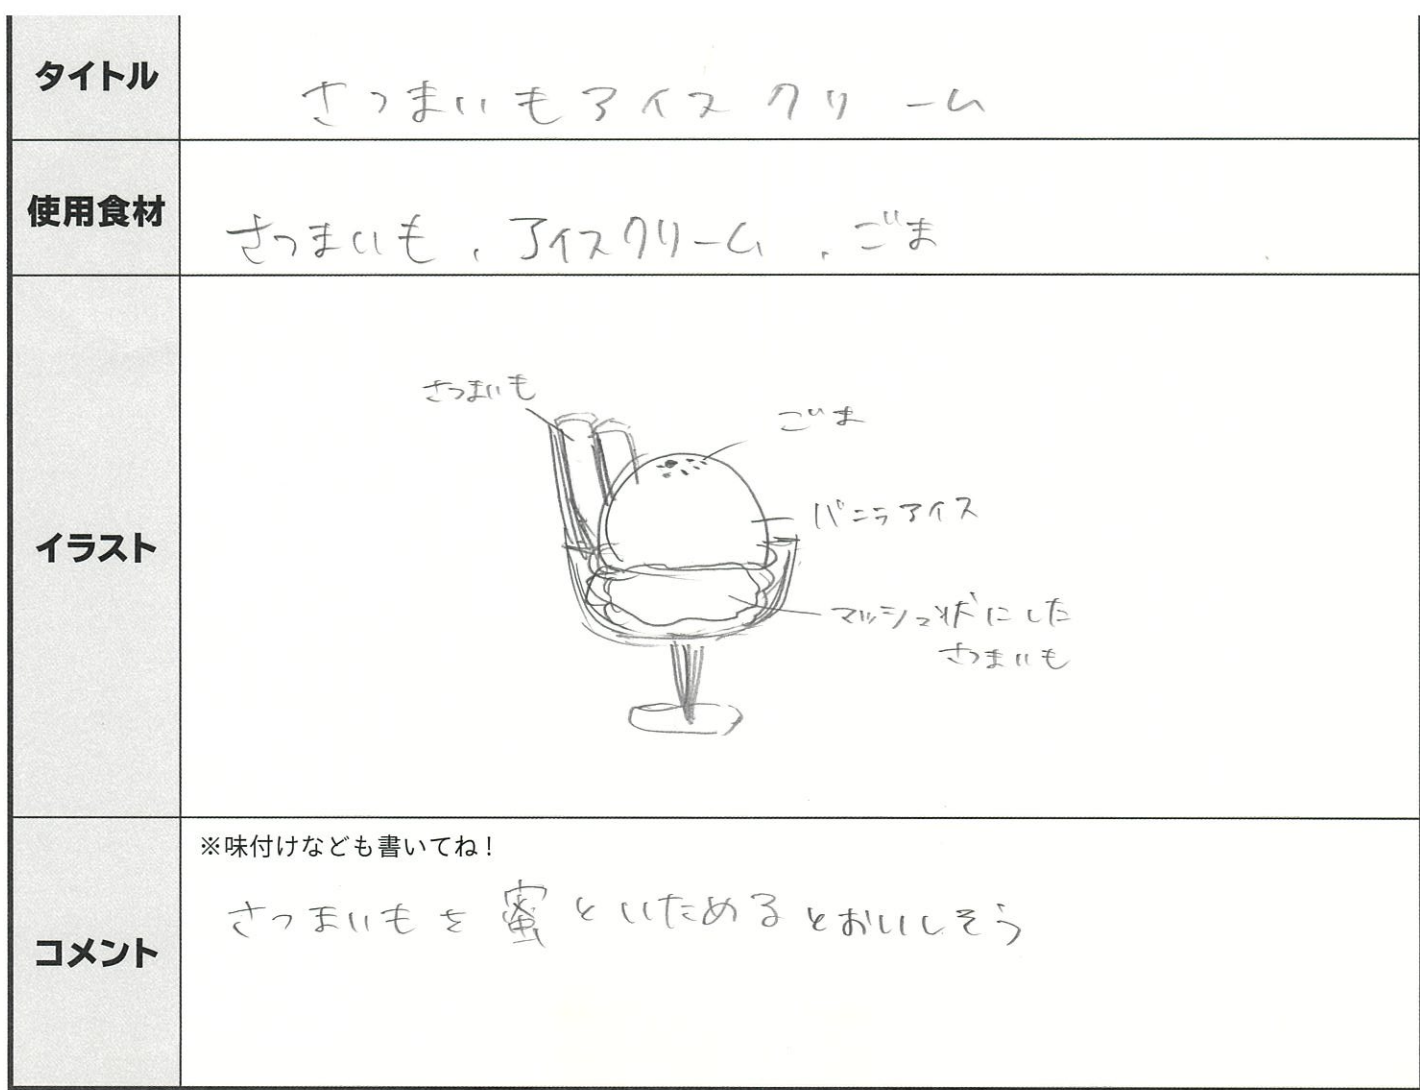 タイトル
さつまいもアイスクリーム
使用食材
さつまいも、アイスクリーム、ごま
イラスト
さつまいも
ごま
バニラアイス
マッシュ状にした
さつまいも
コメント
※味付けなども書いてね!
さつまいもを蜜といためるとおいしそう